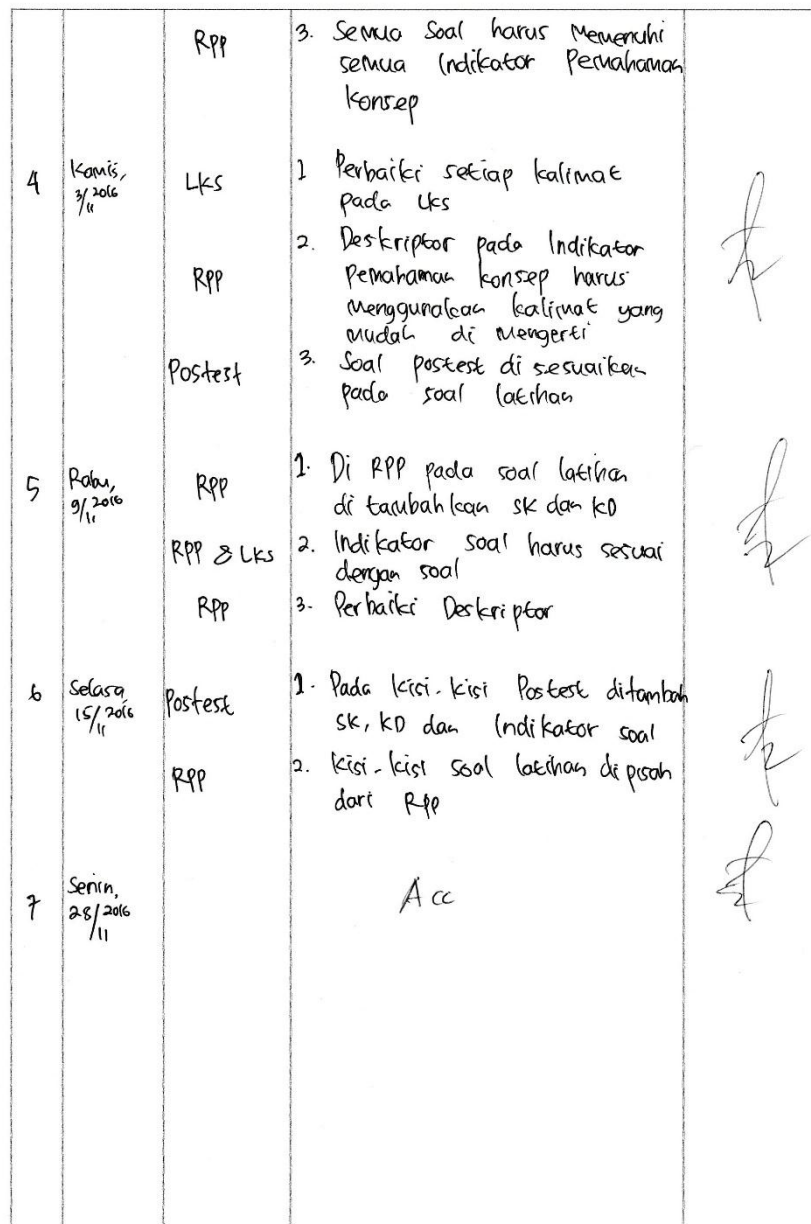 RPP 3. Semua Soal harus Memenuhi
semua Indikator Pemahaman
Konsep
4 Kamis, 3/11 2016 LKS 1 Perbaiki setiap kalimat
pada LKS
RPP 2. Deskriptor pada Indikator
Pemahaman konsep harus
Menggunakan kalimat yang
mudah di Mengerti
Postest 3. Soal postest di sesuaikan
pada soal latihan
5 Rabu, 9/11 2016 RPP 1. Di RPP pada soal latihan
di tambahkan SK dan KD
RPP & LKS 2. Indikator soal harus sesuai
dengan soal
RPP 3. Perbaiki Deskriptor
6 Selasa, 15/11 2016 Postest 1. Pada kisi-kisi Postest ditambah
SK, KD dan Indikator soal
RPP 2. Kisi-kisi soal latihan di pisah
dari RPP
7 Senin, 28/11 2016 Acc